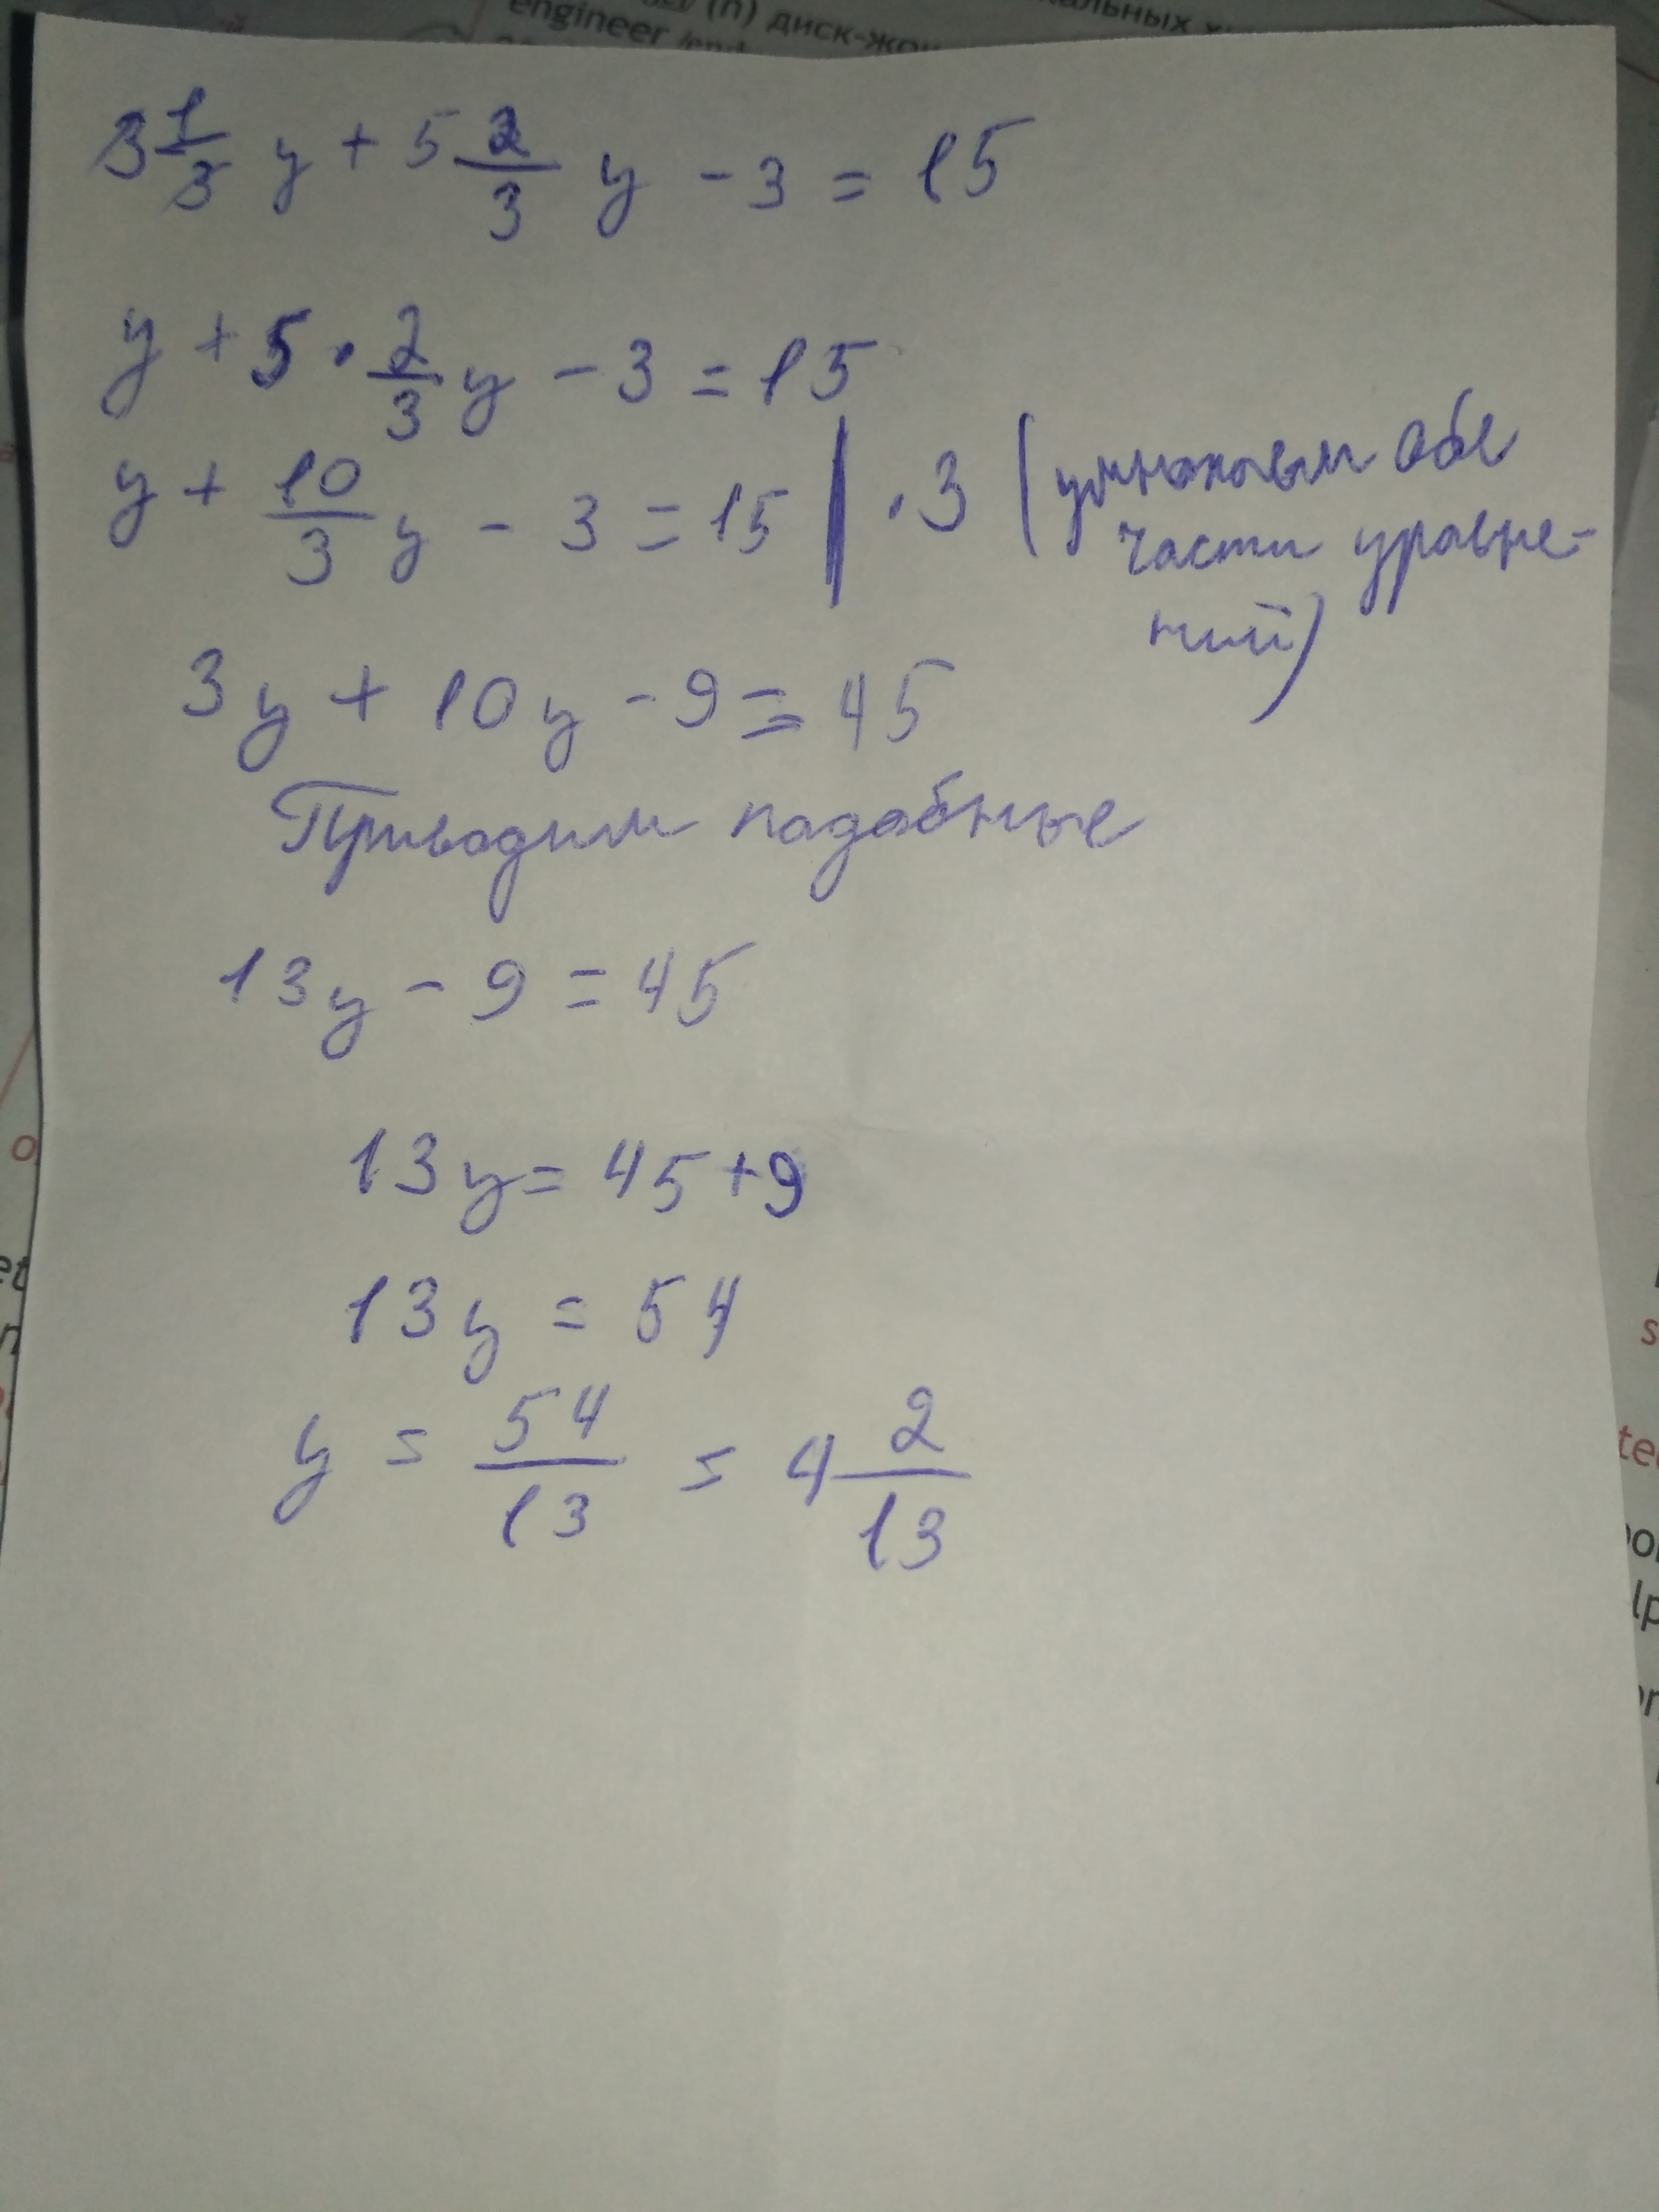 engineer /end
(n) диск-жок
3 1/3 y + 5 2/3 y - 3 = 15
y + 5 · 2/3 y - 3 = 15
y + 10/3 y - 3 = 15 | · 3 (умножаем обе
части уравне-
ний)
3y + 10y - 9 = 45
Приводим подобные
13y - 9 = 45
13y = 45 + 9
13y = 54
y = 54/13 = 4 2/13